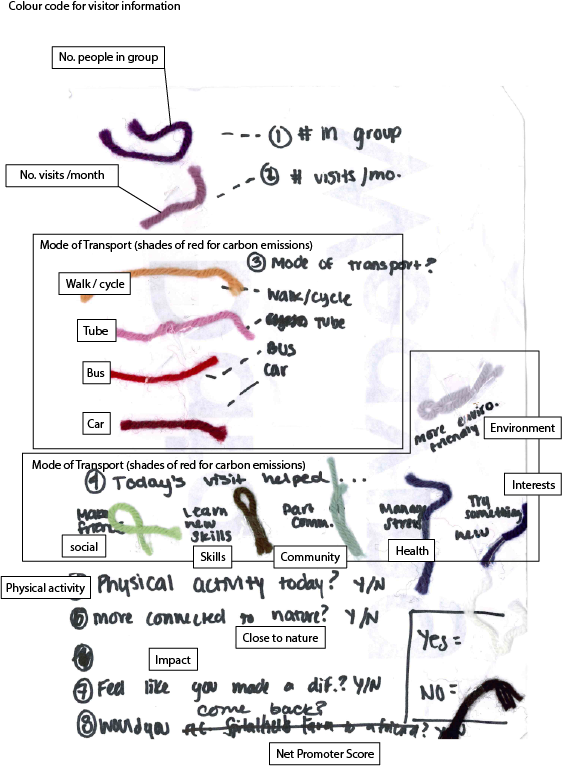 Colour code for visitor information
No. people in group
① # in group
No. visits /month
② # visits/mo.
Mode of Transport (shades of red for carbon emissions)
③ Mode of transport?
Walk / cycle
Walk/cycle
Tube
Tube
Bus
BUS
Car
car
more enviro. friendly
Environment
Mode of Transport (shades of red for carbon emissions)
④ Today's visit helped ...
Interests
Make friends
Learn new skills
Part Comm.
Manage stress
Try something new
social
Skills
Community
Health
Physical activity
Physical activity today? Y/N
⑥ more connected to nature? Y/N
Close to nature
Yes =
Impact
⑦ Feel like you made a dif.? Y/N
NO =
come back?
⑧ Would you
Net Promoter Score